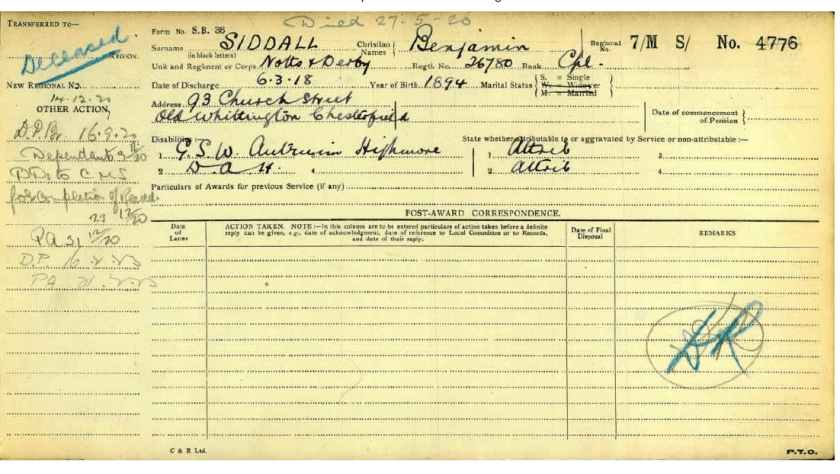 Died 27-5-20
TRANSFERRED TO—
Deceased.
REGION.
NEW REGIONAL NO.
14.12.20
OTHER ACTION,
16.9.20
Dependant
C M S
for completion of
PA 31 12/20
D.P. 16
PA 21.
Form No. S.B. 36
Surname SIDDALL Christian Names Benjamin Regional No. 7/M S/ No. 4776
(in block letters)
Unit and Regiment or Corps Notts & Derby Regtl. No. 26780 Rank Cpl.
Date of Discharge 6.3.18 Year of Birth 1894 Marital Status { S. = Single W. = Widower M. = Married
Address 93 Church Street
Old Whittington Chesterfield
Date of commencement of Pension }
Disabilities:— State whether attributable to or aggravated by Service or non-attributable :—
1. G.S.W. Highmore 3. 1. Attrib 3.
2. D A H. 4. 2. Attrib 4.
Particulars of Awards for previous Service (if any)
POST-AWARD CORRESPONDENCE.
Date of Letter
ACTION TAKEN. NOTE :—In this column are to be entered particulars of action taken before a definite
reply can be given, e.g., date of acknowledgment, date of reference to Local Committee or to Records,
and date of their reply.
Date of Final Disposal
REMARKS
C & R Ltd.
P.T.O.